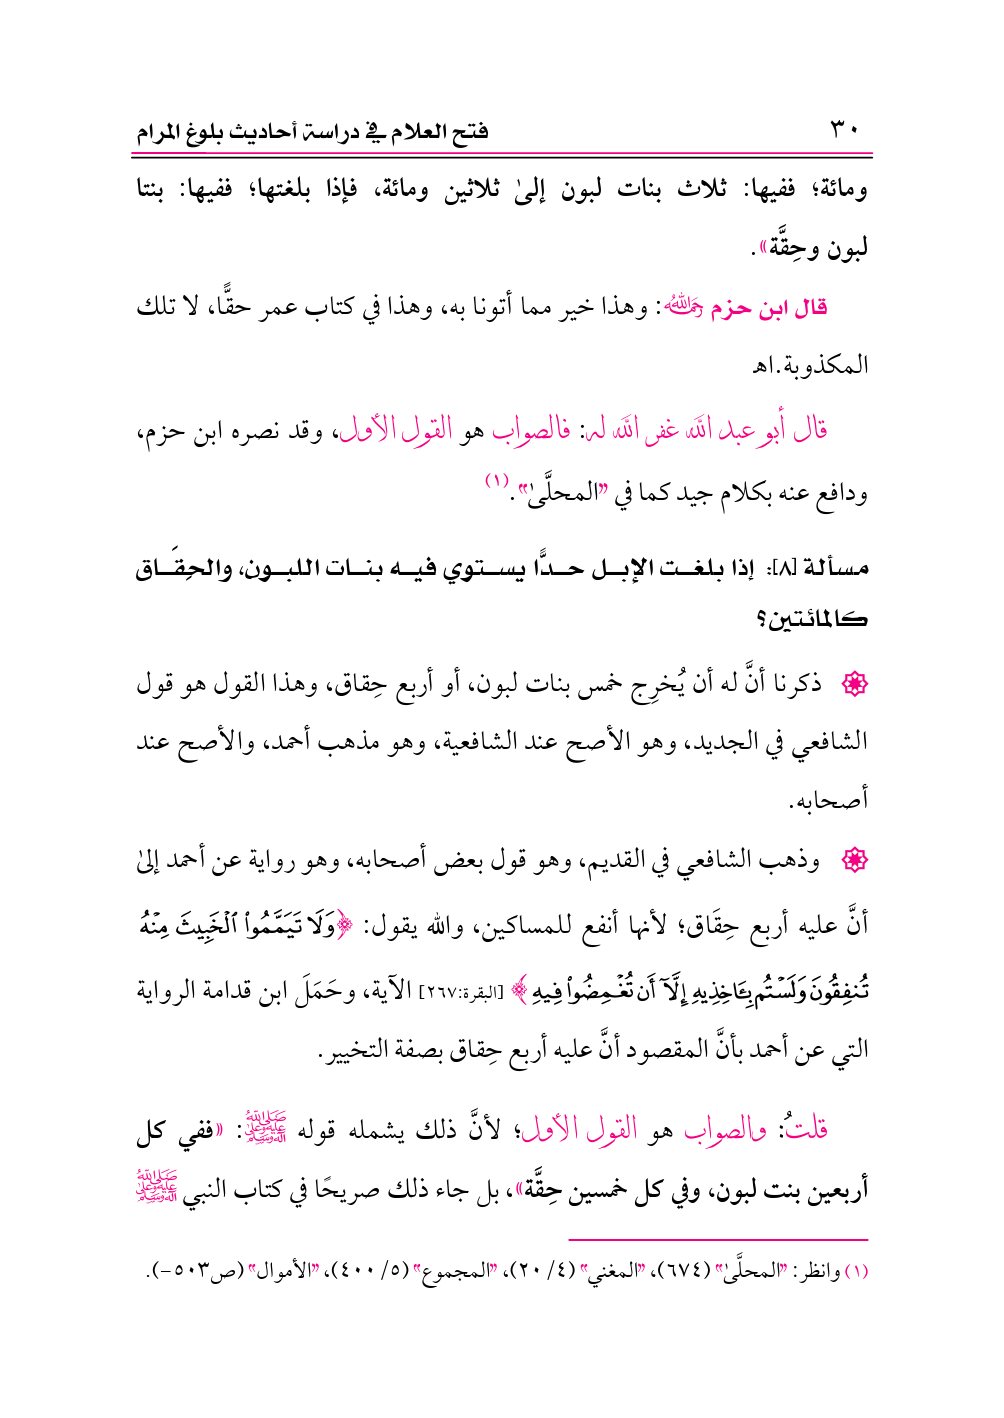 ٣٠ فتح العلام في دراسة أحاديث بلوغ المرام
ومائة؛ ففيها: ثلاث بنات لبون إلىٰ ثلاثين ومائة، فإذا بلغتها؛ ففيها: بنتا
لبون وحِقَّة».
قال ابن حزم رحمه الله: وهذا خير مما أتونا به، وهذا في كتاب عمر حقًّا، لا تلك
المكذوبة.اهـ
قال أبو عبد الله غفر الله له: فالصواب هو القول الأول، وقد نصره ابن حزم،
ودافع عنه بكلام جيد كما في "المحلَّىٰ".(١)
مسألة [٨]: إذا بلغـت الإبـل حـدًّا يسـتوي فيـه بنـات اللبـون، والحِقَـاق
كالمائتين؟
ذكرنا أنَّ له أن يُخرِج خمس بنات لبون، أو أربع حِقاق، وهذا القول هو قول
الشافعي في الجديد، وهو الأصح عند الشافعية، وهو مذهب أحمد، والأصح عند
أصحابه.
وذهب الشافعي في القديم، وهو قول بعض أصحابه، وهو رواية عن أحمد إلىٰ
أنَّ عليه أربع حِقَاق؛ لأنها أنفع للمساكين، والله يقول: ﴿وَلَا تَيَمَّمُوا۟ ٱلْخَبِيثَ مِنْهُ
تُنفِقُونَ وَلَسْتُم بِـَٔاخِذِيهِ إِلَّآ أَن تُغْمِضُوا۟ فِيهِ﴾ [البقرة:٢٦٧] الآية، وحَمَلَ ابن قدامة الرواية
التي عن أحمد بأنَّ المقصود أنَّ عليه أربع حِقاق بصفة التخيير.
قلتُ: والصواب هو القول الأول؛ لأنَّ ذلك يشمله قوله ﷺ: «ففي كل
أربعين بنت لبون، وفي كل خمسين حِقَّة»، بل جاء ذلك صريحًا في كتاب النبي ﷺ
(١) وانظر: "المحلَّىٰ" (٦٧٤)، "المغني" (٤/ ٢٠)، "المجموع" (٥/ ٤٠٠)، "الأموال" (ص٥٠٣-).